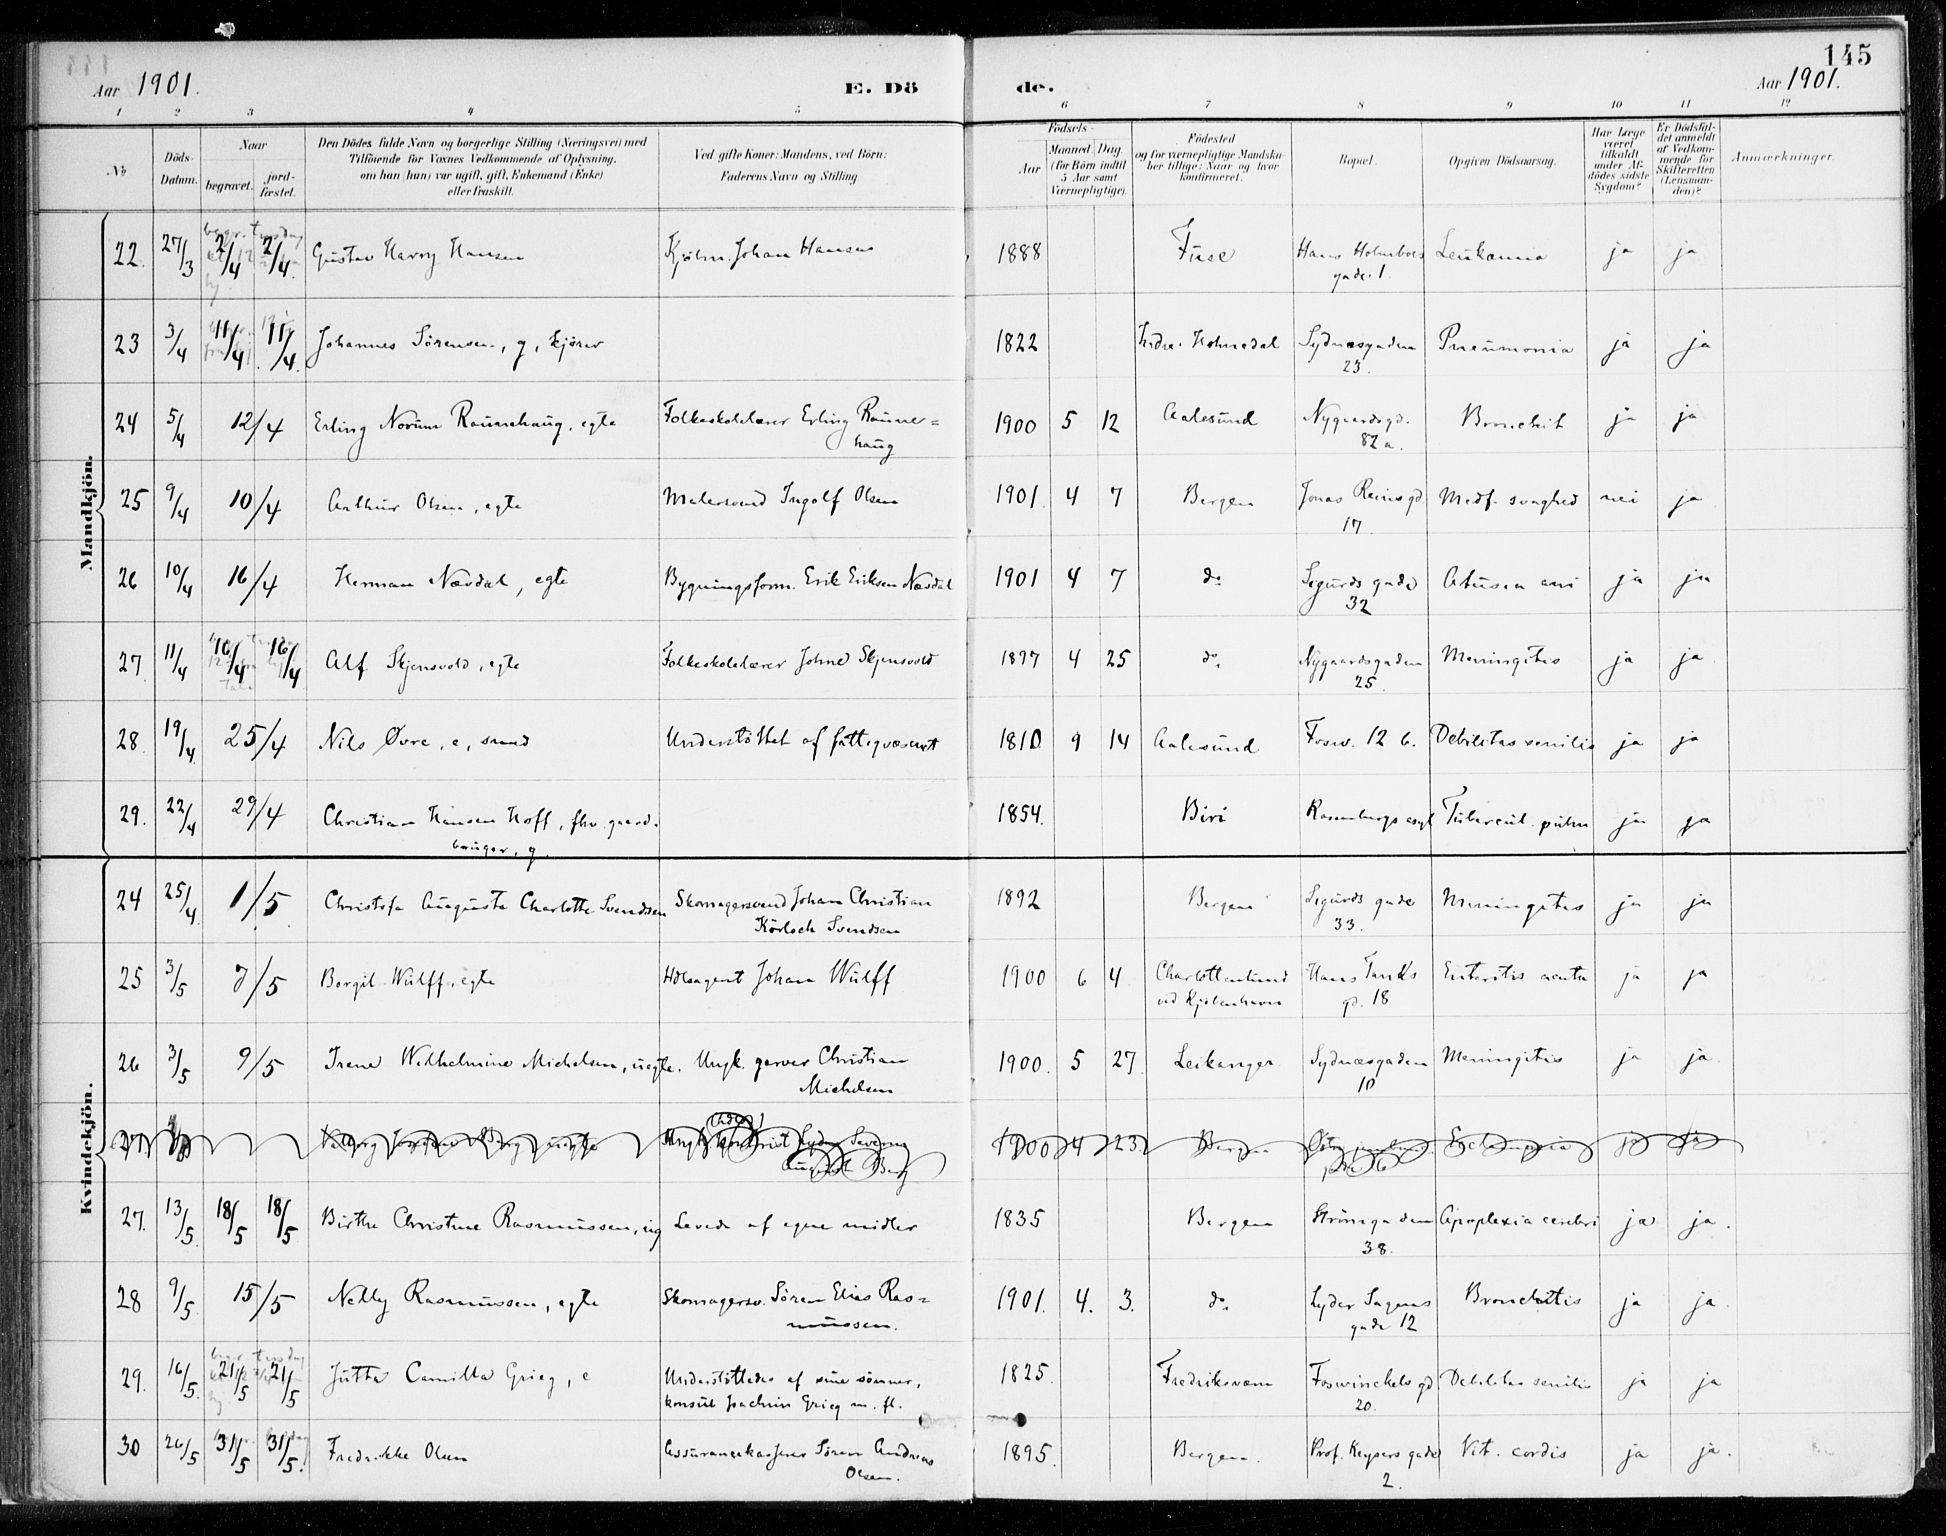 145
Aar 1901. E. Dö de. Aar 1901.
1 2 3 4 5 6 7 8 9 10 11 12
№
Döds-Datum.
Naar
begravet.
jord-fæstet.
Den Dödes fulde Navn og borgerlige Stilling (Næringsvei) med
Tilföiende for Voxnes Vedkommende af Oplysning,
om han (hun) var ugift, gift, Enkemand (Enke)
eller fraskilt.
Ved gifte Koner: Mandens, ved Börn:
Faderens Navn og Stilling.
Födsels-
Aar
Maaned Dag
(for Börn indtil
5 Aar samt
Værnepligtige).
Födested
og for værnepligtige Mandska-
ber tillige: Naar og hvor
konfirmeret.
Bopæl.
Opgiven Dödsaarsag.
Har Læge
været
tilkaldt
under Af-
dödes sidste
Sygdom?
Er Dödsfal-
det anmeldt
af Vedkom-
mende for
Skifteretten
(Lensman-
den)?
Anmærkninger.
Mandkjön.
22. 27/3 2/4 2/4. Gustav Harry Hansen Kjölm. Johan Hansen 1888 Fuse Hans Holmboes Leukæmia ja ja
gade 1.
23 3/4 11/4 11/4. Johannes Sörensen, g, kjörer 1822 Indre Holmedal Sydnæsgaden Pneumonia ja ja
23.
24 5/4 12/4 Erling Norum Raunehaug, egte Folkeskolelærer Erling Raune= 1900 5 12 Aalesund Nygaardsgd. Bronchit ja ja
haug 82 a.
25 9/4 10/4 Arthur Olsen, egte Malersvend Ingolf Olsen 1901. 4 7 Bergen Jonas Reinsgd. Medf. svaghed nei ja
17
26 10/4 16/4 Herman Nævdal, egte Bygningsform. Erik Eriksen Nævdal 1901 4 7 do Sigurds gade ani ja ja
32
27. 11/4 16/4 16/4 Alf Skjensvold, egte Folkeskolelærer Skjensvold 1897 4 25 do. Nygaardsgaden Meningitis ja ja.
25.
28. 19/4. 25/4 Nils Øvre, e, smed Understöttet af fattigvæsenet 1810 9 14 Aalesund Fosw. 12 b. Debilitas senilis ja ja
29. 22/4 29/4 Christian Hansen Hoff, fhv. gaard- 1854. Biri Rosenbergs asyl Tubercul. pulm ja ja
bruger, g.
Kvindekjön.
24 25/4. 1/5. Christofa Augusta Charlotte Svendsen Skomagersvend Johan Christian 1892 Bergen Sigurds gade Meningitis ja ja
Svendsen 33.
25 3/5 7/5 Borgil Wulff, egte Holsagent Johan Wulff 1900 6 4. Charlottenlund Hans Tanks Enteritis acuta ja ja
ved Kjöbenhavn gd. 18
26 3/5 9/5 Irene Wilhelmine Michelsen, uegte. Ungk. garver Christian 1900. 5 27 Leikanger Sydnæsgaden Meningitis ja ja.
Michelsen 10
27 Berg uegte Ungk. Lyder Severin 1900 4 23. Bergen Eclampsia ja ja
August Berg
27. 13/5. 18/5 18/5 Birthe Christine Rasmussen, ug Levede af egne midler 1835 Bergen Strömgaden Apoplexia cerebri ja ja.
38.
28 9/5. 15/5 Nelly Rasmussen, egte Skomagersv. Sören Elias Ras= 1901. 4. 3. do. Lyder Sagens Bronchitis ja ja.
mussen. gade 12
29. 16/5. 21/5 21/5 Jutta Camilla Grieg, e Understöttedes af sine sönner, 1825. Fredriksværn Foswinckels gd. Debilitas senilis ja ja
konsul Joachim Grieg m. fl. 20.
30 26/5 31/5 31/5. Fredrikke Olsen Assurancekasserer Sören Andreas 1895. Bergen. Prof. Keysers gade Vit. cordis ja ja.
Olsen. 2.